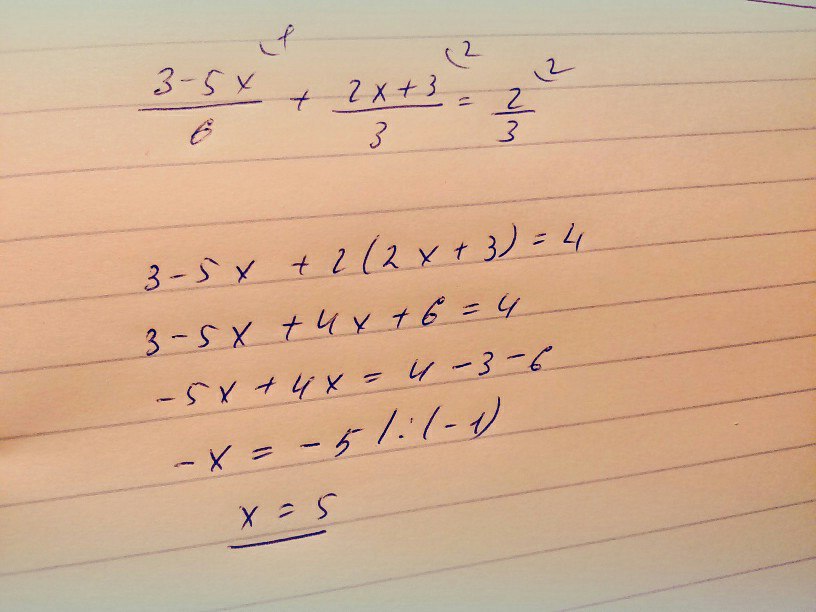 (3-5x)/6 ⁽¹ + (2x+3)/3 ⁽² = 2/3 ⁽²
3-5x + 2(2x+3) = 4
3-5x + 4x + 6 = 4
-5x + 4x = 4 - 3 - 6
-x = -5 /:(-1)
x = 5